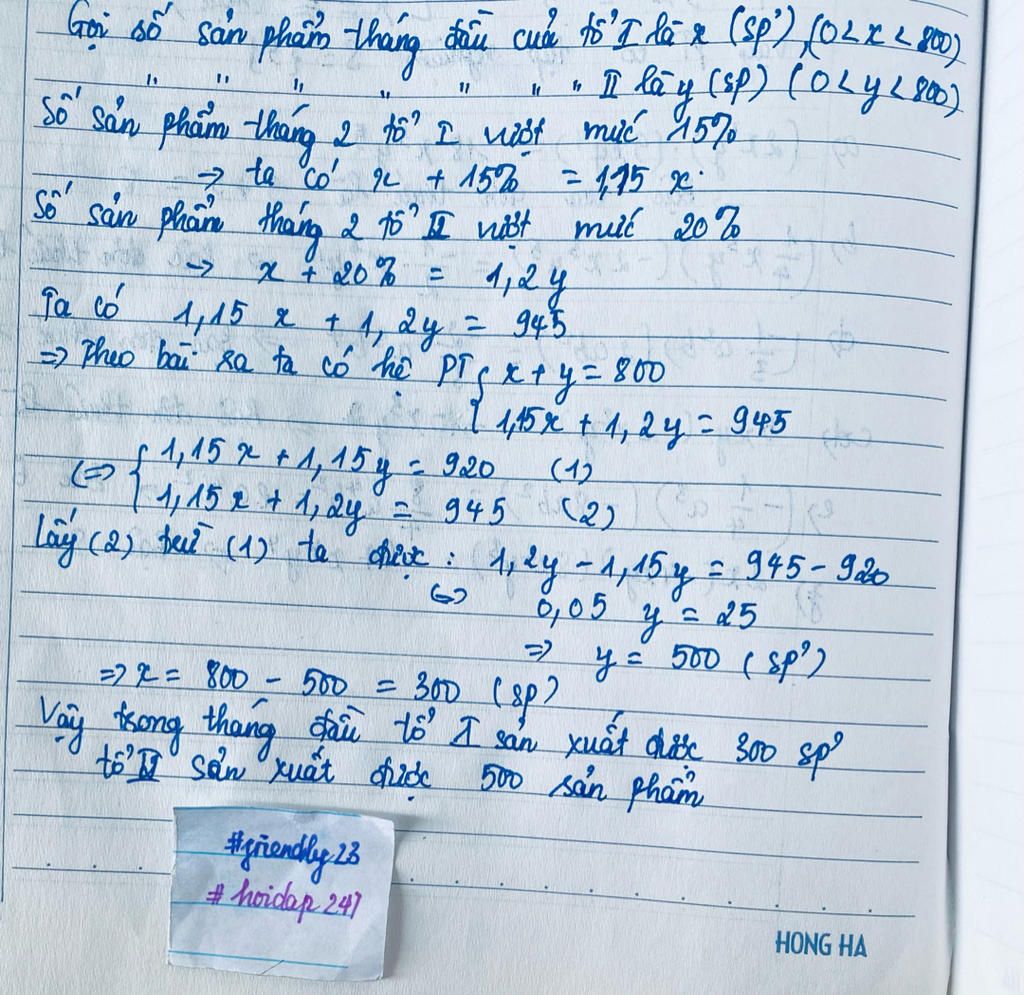 Gọi số sản phẩm tháng đầu của tổ I là x (sp), (0 < x < 800)
" " " " " " " II là y (sp) (0 < y < 800)
Số sản phẩm tháng 2 tổ I vượt mức 15%
→ ta có x + 15% = 1,15 x.
Số sản phẩm tháng 2 tổ II vượt mức 20%
→ x + 20% = 1,2y
Ta có 1,15 x + 1,2y = 945
=> Theo bài ra ta có hệ PT { x + y = 800
1,15x + 1,2y = 945
(=> { 1,15x + 1,15y = 920 (1)
1,15x + 1,2y = 945 (2)
Lấy (2) trừ (1) ta được : 1,2y - 1,15y = 945 - 920
<=> 0,05 y = 25
=> y = 500 (sp)
=> x = 800 - 500 = 300 (sp)
Vậy trong tháng đầu tổ I sản xuất được 300 sp
tổ II sản xuất được 500 sản phẩm
#friendly23
#hoidap247
HONG HA